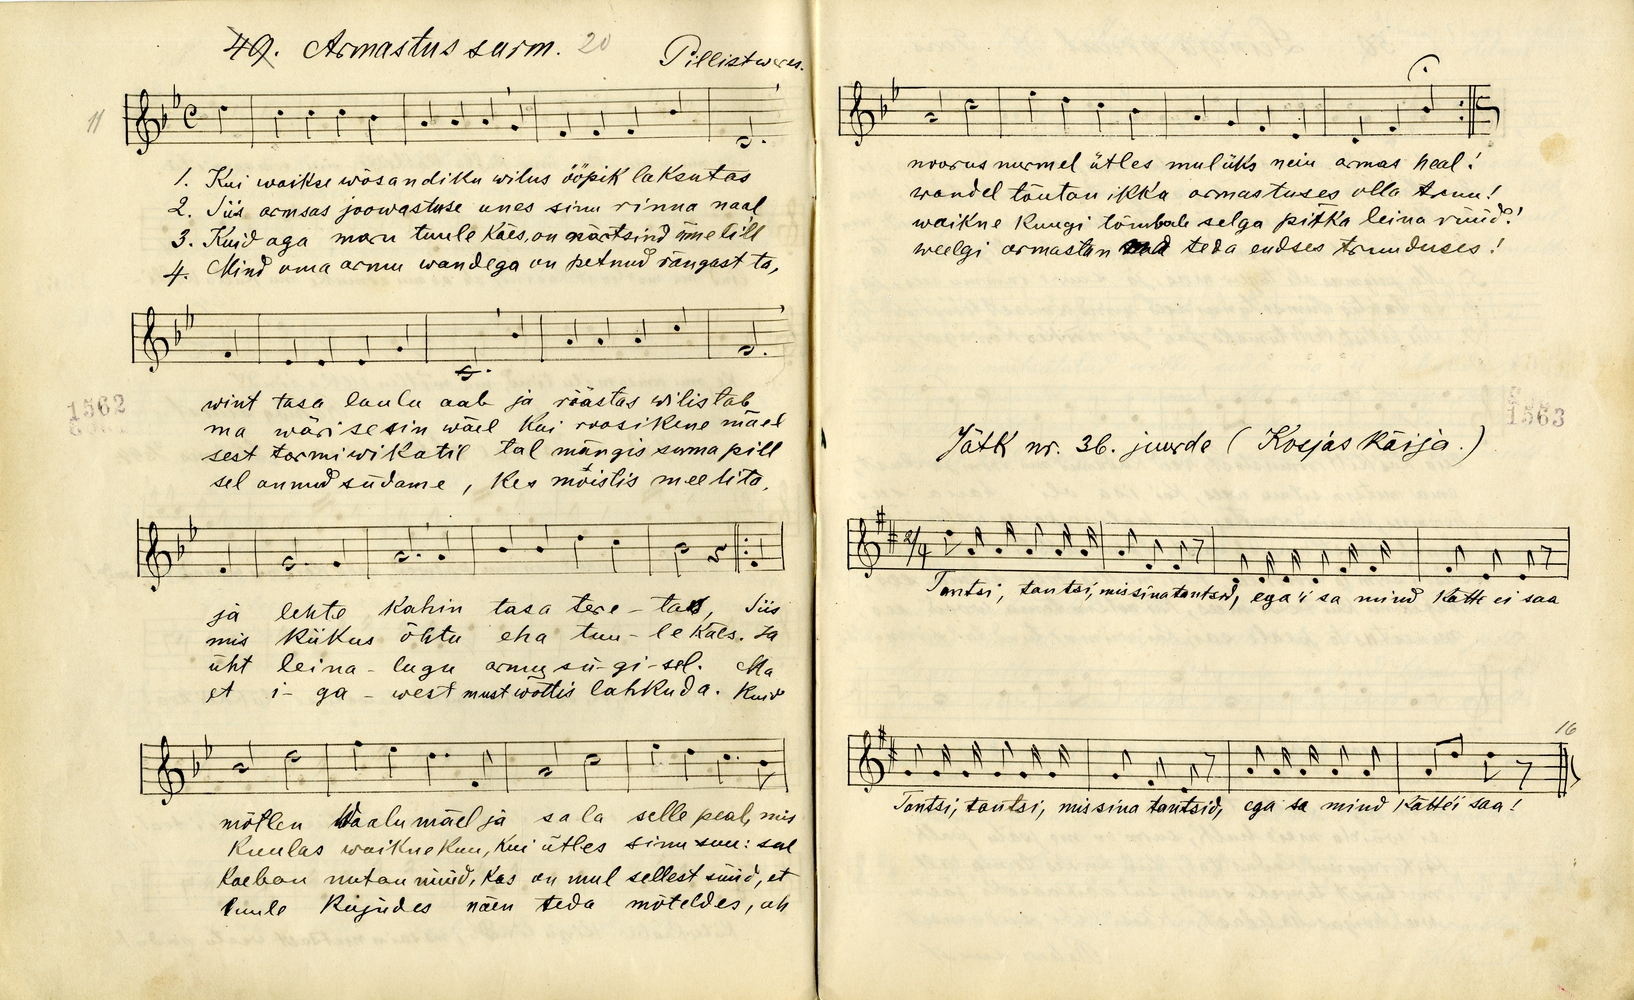 49. Armastus surm. 20
Pillistweres.
11
1. Kui waikse wõsandiku wilus ööpik laksutas
2. Siis armsas joowastuse unes sinu rinna naal
3. Kuid aga maru tuule käes, on närtsind õnne lill
4. Mind oma armu wandega on petnud rängast ta,
wint tasa laulu aab ja räästas wilistab
ma wärisesin wäel kui roosikene mäel
sest tormiwikatil tal mängis surma pill
sel annud südame, kes mõistis meelita,
1562
ja lehte kahin tasa tere-tas, Siis
mis kiikus õhtu eha tuu-le käes. Ja
üht leina-lugu armu sü-gi-sel. Ma
et i-ga-west must wõttis lahkuda. Kuid
mõtlen Waalumäel ja sala selle peal, mis
kuulas waikne kuu, kui ütles sinu suu: sul
kaeban nutan nüüd, kas on mul sellest süüd, et
tuule kiigudes näen teda mõteldes, ah
noorusnurmel ütles mul üks neiu armas heal!
wandel tõutan ikka armastuses olla truu!
waikne kuugi tõmbab selga pitka leina rüüd!
weelgi armastan teda endses truuduses!
1563
Jätk nr. 36. juurde (Kosjaskäija.)
2/4
Tantsi, tantsi, mis sina tantsid, ega'i sa mind kätte ei saa
16
Tantsi, tantsi, mis sina tantsid, ega sa mind kätte'i saa!